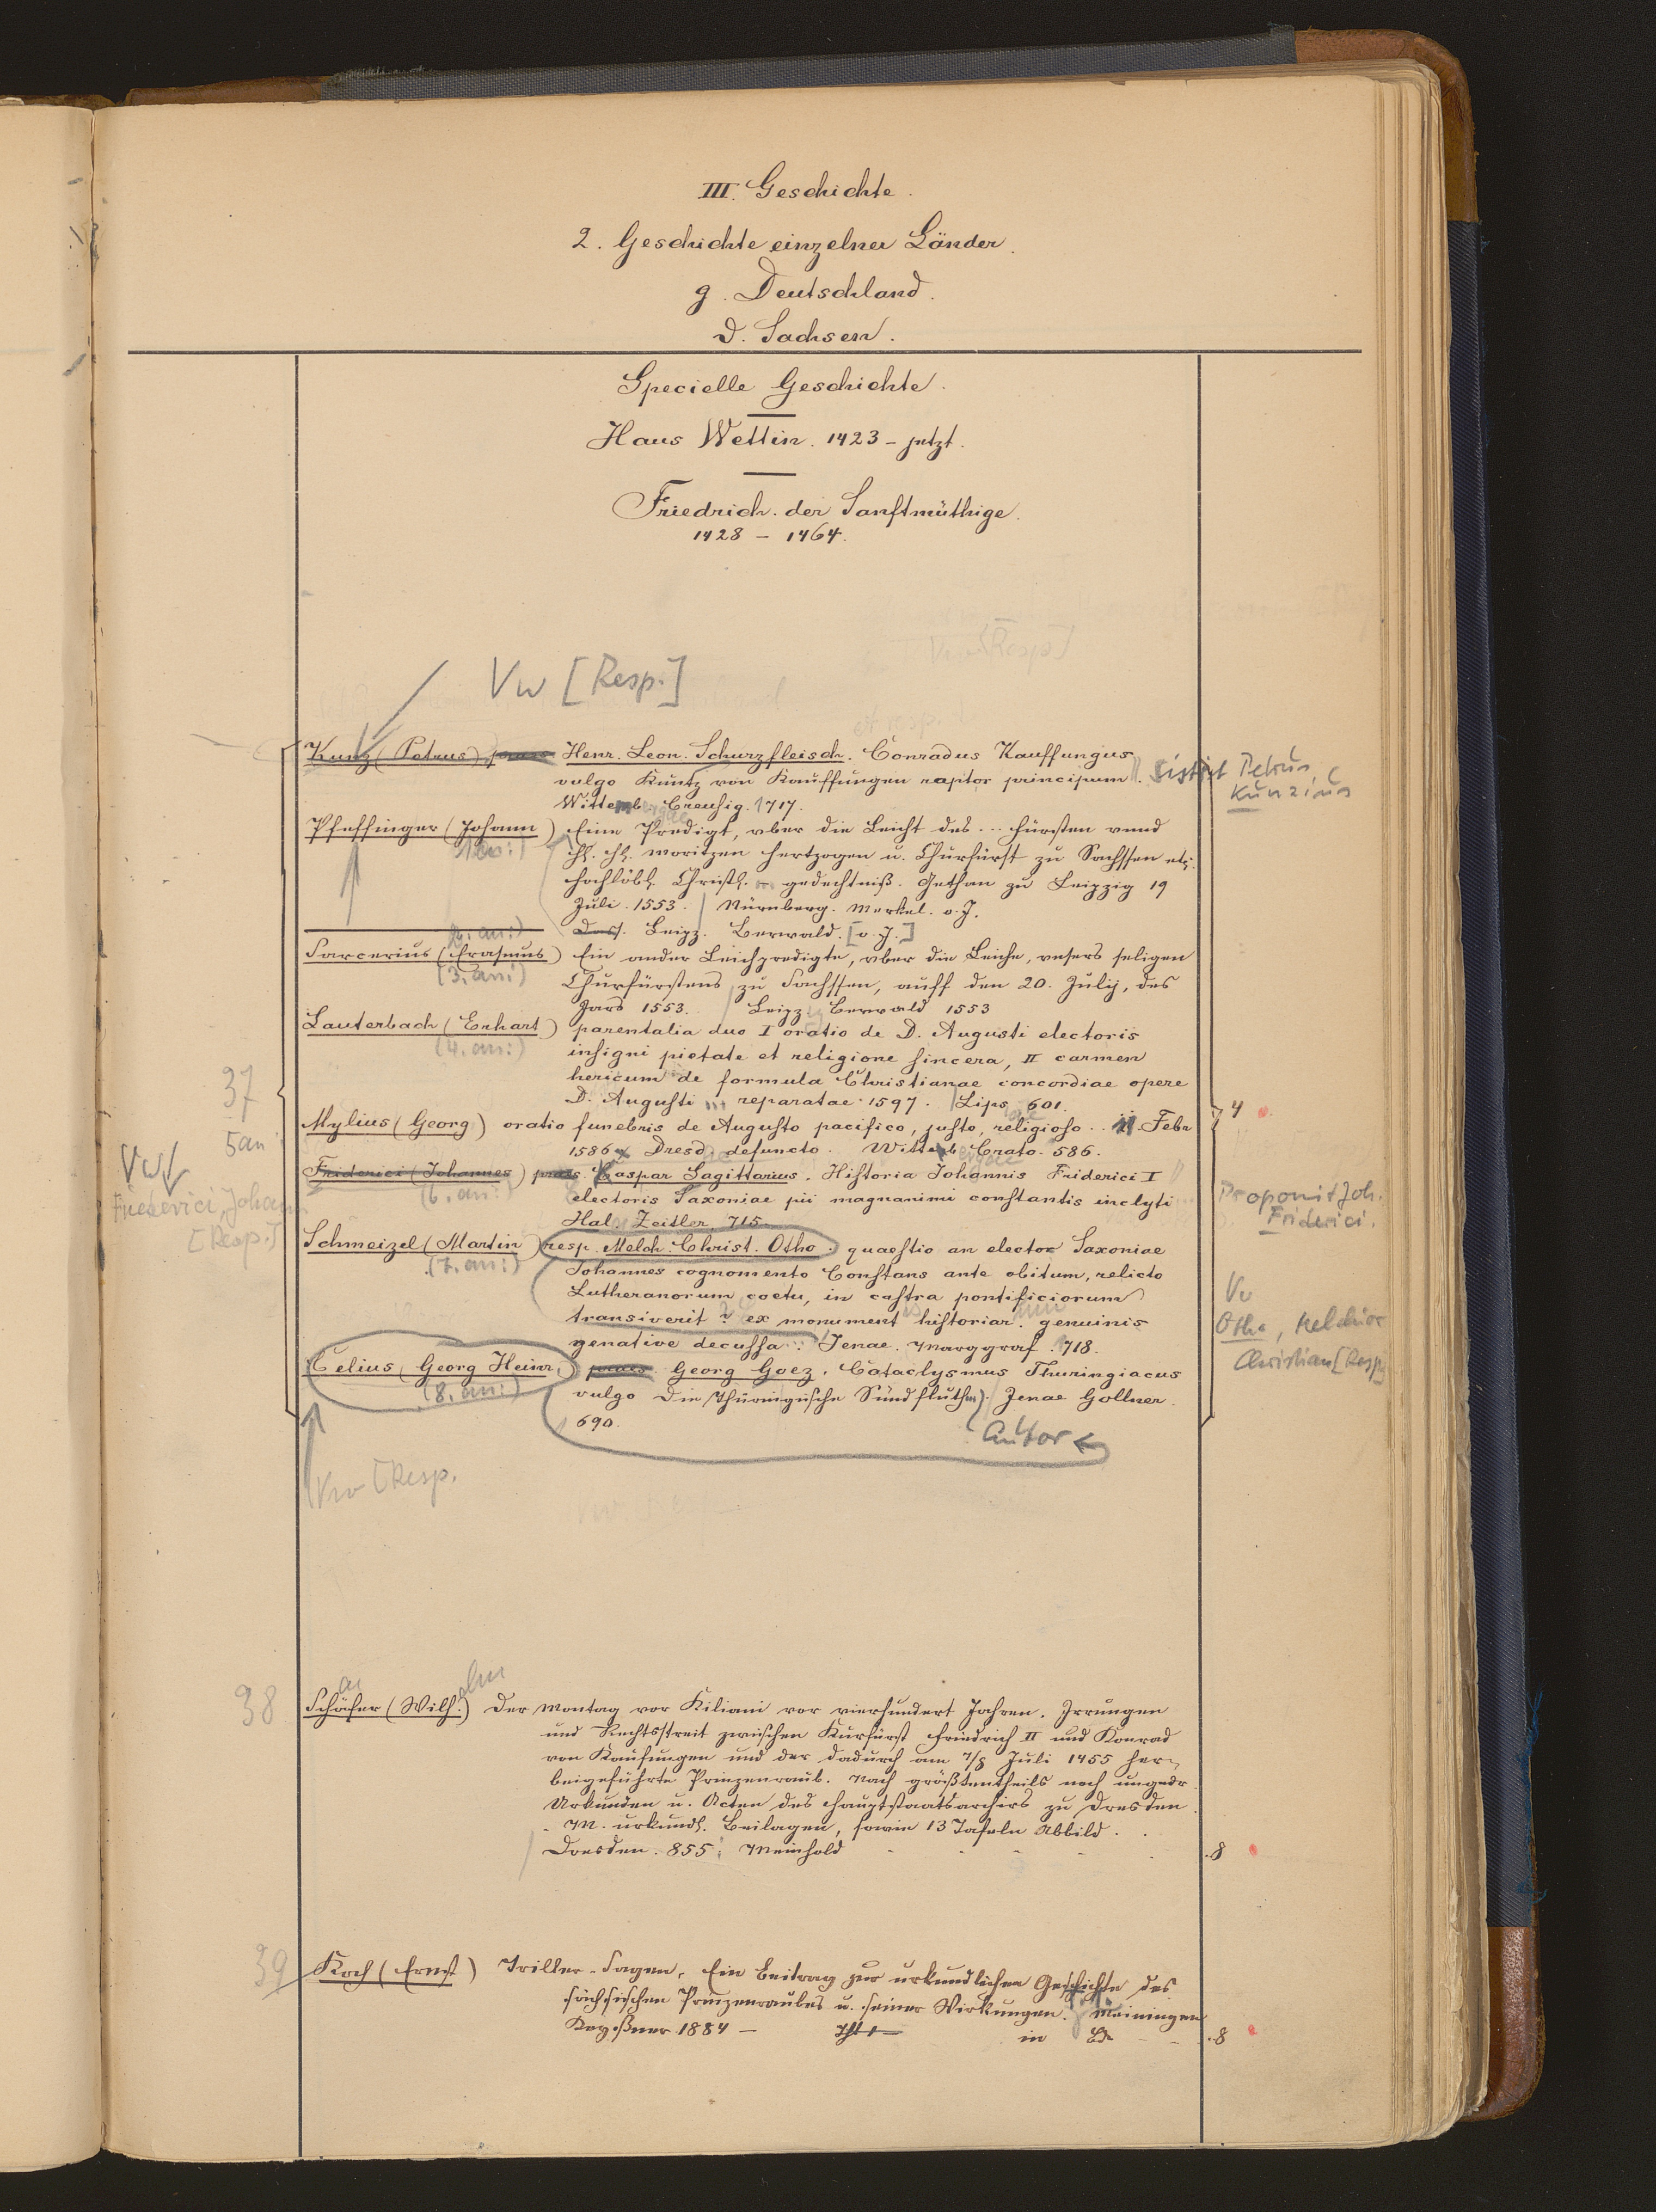 III. Geschichte.
2. Geschichte einzelner Länder.
g. Deutschland.
d. Sachsen.
Specielle Geschichte.
Haus Wettin. 1423 - jetzt.
Friedrich der Sanftmüthige.
1428 - 1464.
Vw [Resp.]
Kunz (Petrus) praes Henr. Leon. Schurzfleisch. Conradus Kauffungus
vulgo Kuntz von Kauffungen raptor principum. Sistit Petrus
Kunzius
Wittemb Creusig. 1717.
Pfeffinger (Johann) Eine Predigt, vber die Leicht des ... fürsten vnnd
(1. an:)
moritzen hertzogen u. Churfürst zu Sachssen etc.
hochlöbl. Christl. ... gedechtniß. Gethan zu Leipzig 19
Juli 1553. Nürnberg. Merkel. o. J.
(2. an:) Dass. Leipz. Berwald. [o. J.]
Sarcerius (Erasmus) Ein ander Leichpredigte, vber die Leiche, vnsers seligen
(3. an:)
Churfürstens zu Sachssen, auff den 20. Julij, des
Jars 1553. Leipz Berwald 1553
Lauterbach (Erhart) parentalia duo I oratio de D. Augusti electoris
(4. an:)
insigni pietate et religione sincera, II carmen
hericum de formula Christianae concordiae opere
D. Augusti ... reparatae 1597. Lips 601.
37
4
Mylius (Georg) oratio funebris de Augusto pacifico, justo, religioso .. 11. Febr
5 an
1586 Dresd defuncto. Witteb Crato. 586.
Vw
Friderici (Johannes) praes. Kaspar Sagittarius. Historia Johannis Friderici I
(6. an:)
Friederici, Johann
[Resp.]
electoris Saxoniae pii magnanimi constantis inclyti
Proponit Joh.
Friderici.
Hal. Zeitler, 715.
Schmeizel (Martin) resp. Melch. Christ. Otho. quaestio an elector Saxoniae
(7. an:)
Johannes cognomento Constans ante obitum, relicto
Lutheranorum coetu, in castra pontificiorum
transiverit? ex monument historiar. genuinis
Vw
Otho, Melchior
Christian [Resp.]
genative decussa. Jenae. Marggraf. 718.
Celius (Georg Heinr.) praes Georg Goez. Cataclysmus Thuringiacus
(8. an:)
vulgo Die Thüringische Sündfluth. Jenae Gollner.
690.
Autor
Vw [Resp.
38
Schäfer (Wilh.) Der Montag vor Kiliani vor vierhundert Jahren. Irrungen
und Rechtsstreit zwischen Kurfürst Friedrich II und Konrad
von Kaufungen und der dadurch am 7/8 Juli 1455 her-
beigeführte Prinzenraub. Nach größtentheils noch ungedr.
Urkunden u. Acten des Hauptstaatsarchivs zu Dresden.
M. urkundl. Beilagen, sowie 13 Tafeln Abbild.
Dresden. 855. Meinhold 8
39
Koch (Ernst) Triller-Sagen. Ein Beitrag zur urkundlichen Geschichte des
sächsischen Prinzenraubes u. seiner Wirkungen. Meiningen
1884 - in 8